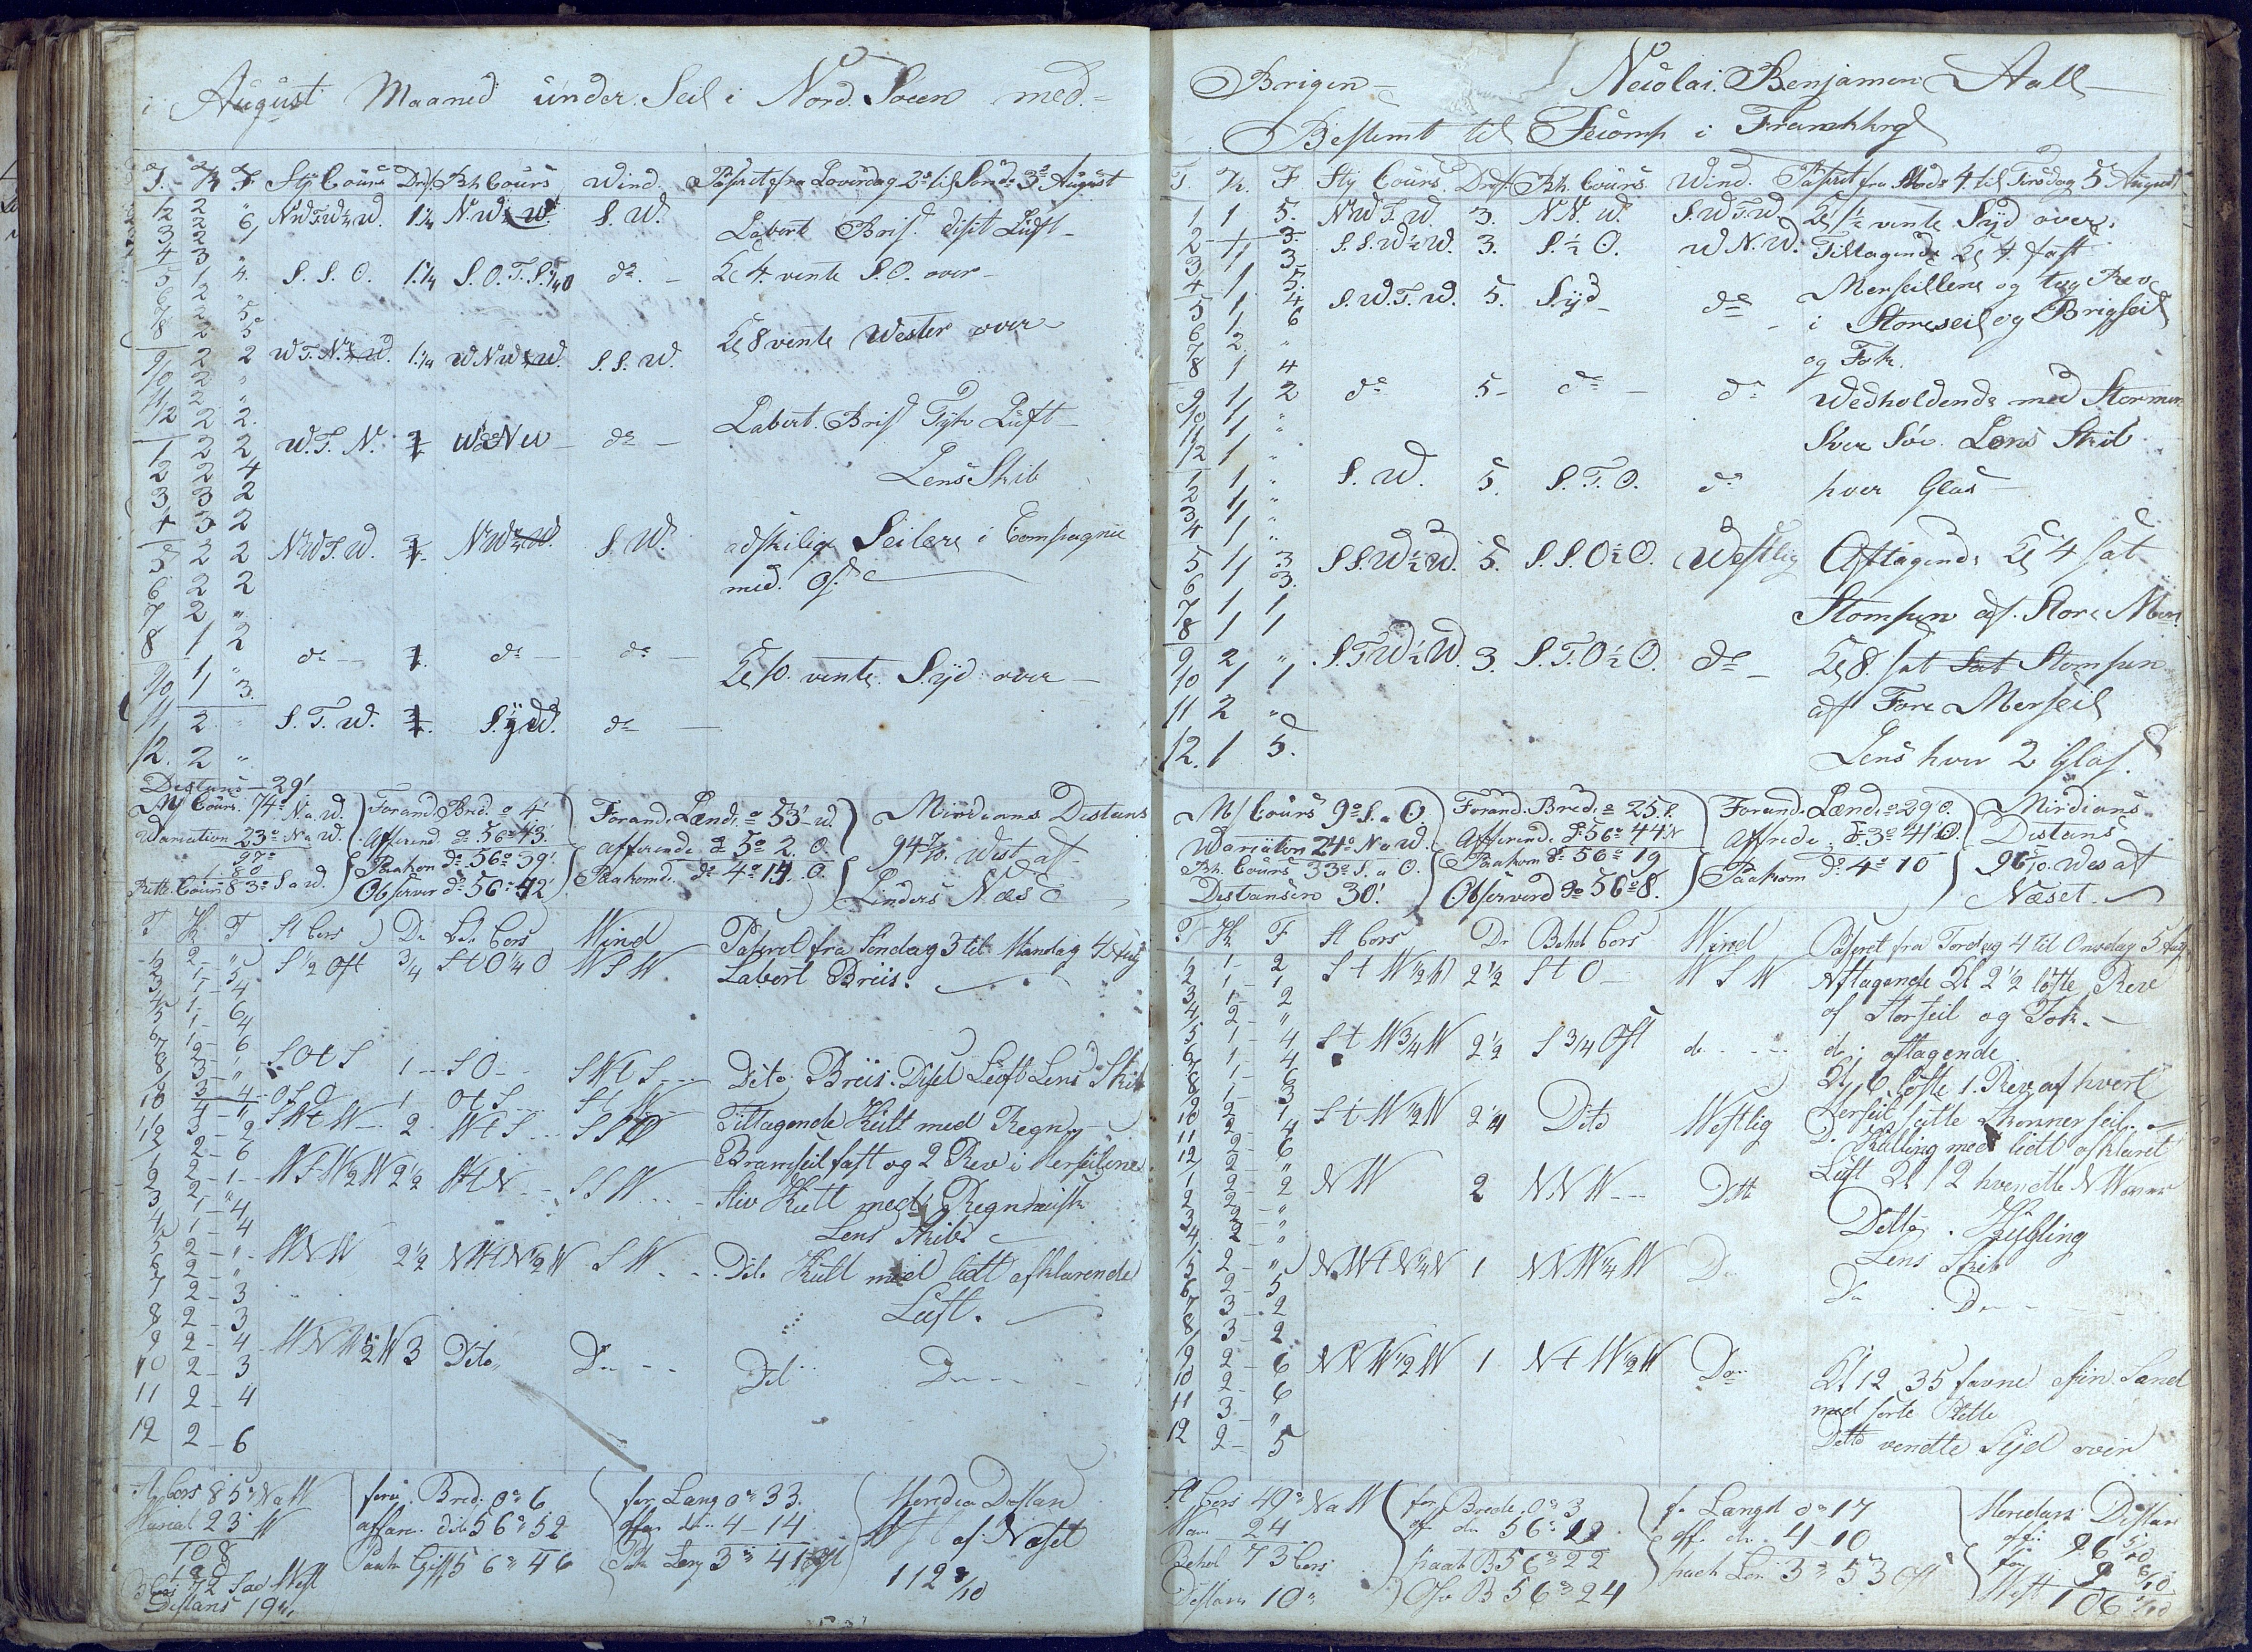 i August Maaned under Seil i Nord Soeen med
T. K F Sty Cours Drft. Bh Cours Wind Pasiret fra Loverdag 2 til Sönd 3 August
1 2 " N.W.T.W½W. 1¼ N.W. S.W. Labert Bris. disit Luft
2 2 6
3 2
4 3 "
5 1 4 S.S.O. 1¼ S.O.T.S.¼O do Kl 4 vente S.O. over
6 2 "
7 2 5
8 2 5 Kl 8 vente Wester over
9 2 2 W.T.N. 1¼ W.N.W. S.S.W.
10 2 "
11 2 "
12 2 2 Labert Bris Tyk Luft
1 2 2 W.T.N. WNW do
2 2 4 Lens Skib
3 3 2
4 3 2
5 2 2 N.W.T.W. N.W. S.W. adskilige Seilere i Compagnie
6 2 2 med Os
7 2 "
8 1 2
9 1 " do do do Kl 10 vente Syd over
10 1 3
11 2 " S.T.W. Syd do
12 2 "
Distans 29'
M/ Cours 74° N a W. Forand. Bred. 0 4' Forand. Længd. 0° 53' W. Mirdians Distans
Variation 23° N a W. Afferend do 56° 43' afferende do 5° 2 O. 94 7/10 West af
97° Paakom do 56° 39' Paakomd do 4° 14 O. Linders Næs
180
Rette Cours 83° S a W. Observer do 56° 42'
T K F St Cors Dr Be Cors Wind Paseret fra Söndag 3 til Mandag 4 Aug
1 2 " S ½ Ost ¾ S t O ¼ O W S W Labert Breis.
2 1 5
3 1 4
4 1 6
5 1 4
6 1 6
7 2 " S O t S 1 S O S W t S Dito Breis. Diset Luft Lens Skib
8 3 "
9 3 4 O S O 1 O t S S t W
10 4 " S W t W 2 W t S S S W Tiltagende Kult med Regn
11 3 2
12 2 6 Bramseil fast og 2 Rev i Merseilene
1 2 1 W S W ½ W 2½ W t N S S W Stiv Kult med Regn
2 2 "
3 1 4 Lens Skib
4 1 4
5 2 1 W N W 2½ N W t N ½ W S W Dito Kult med lidt afklarende
6 2 "
7 2 3 Luft.
8 2 3
9 2 4 W N W ½ W 3 Dito Do Dito Do
10 2 3
11 2 4
12 2 6
St Cors 85° N a W foran. Bred. 0° 6 for Lang 0° 33 Meredia Distan
Variat 23 W affaren dito 56° 52 affar do 4 – 14 W af Naset
108 Paak Giss 56° 46 Pak Leng 3° 41 Ost 112 8/10
180
B Cors 72 S a West
Distans 19
Brigen Neicolai Benjamen Aall
Bestemt til Fecomp i Franchkrg
T. K. F Sty Cours. Drft. Bh. Cours. Wind. Pasiret fra Mond 4 til Tirsdag 5 August
1 1 5 N.W.T.W. 3. N.N.W. S.W.T.W. Kl ½ vente Syd over.
2 1 3 S.S.W½W. 3. S.½O. W.N.W. Tiltagende Kl 4 fast
3 1 3 Merseillene og tog Rev
4 1 5
5 1 4 S.W.T.W. 5. Syd do i Storeseil og Brigseil
6 1 6
7 2 " og Fok.
8 1 4
9 1 2 do 5 do do Wedholdende med Stormen
10 1 "
11 1 " Svær Söe. Lens Skib
12 1 "
1 1 " S.W. 5. S.T.O. do hver Glas
2 1 "
3 1 "
4 1 "
5 1 3 S.S.W½W. 5. S.S.O½O. Westlig Aftagende Kl 4 sat
6 1 3
7 1 1 Stompen af Store Mers
8 1 1
9 2 " S.T.W½W. 3. S.T.O½O. do Kl 8 sat Sat Stompen
10 1 1
11 2 " af Fore Merseil
12 1 5 Lens hver 2 Glas.
M/ Cours 9° S. a O. Forand. Bred. 0 25 S. Forand. Længd. 0° 29 O. Mirdians
Wariation 24° N a W. Afferende do 56° 44' N Affrede do 3° 41' O. Distans
Bh. Cours 33° S. a O. Paakom do 56° 19 Paakom do 4° 10 96 /10 Wes af
Distansen 30'. Observerd do 56° 8. Næset.
T K F St Cors Dr Behol Cors Wind Paseret fra Tirsdag 4 til Onsdag 5 Aug
1 1 2 S t W ½ W 2½ S t O W S W Aftagende Kl 2½ löste Reve
2 1 1
3 1 2 af Storseil og Fok.
4 2 "
5 1 4 S t W ¾ W 2½ S ¾ Ost do do aftagende
6 1 4
7 1 6 Kl 6 löste 1. Rev af hvert
8 1 3
9 2 1 S t W ½ W 2¼ Dito Westlig Merseil satte Skonnerseil.
10 2 4 Do Kulling med lidt afklaret
11 2 6
12 2 " Luft Kl 12 hvendte N W over
1 2 2 N W 2 N N W Ditto
2 2 " Ditto. Kulling
3 2 "
4 2 " Lens Skib
5 2 " N W t N ¼ N 1 N N W ¼ W Do Do Do
6 2 5
7 3 2
8 3 2
9 2 6 N N W ½ W 1 N t W ½ W Do Kl 12 35 favne fin Sand
10 2 6
11 3 " med sorte Plette
12 2 5 Ditto vendte Syd over
St Cors 49° N a W for Brede 0° 3 f. Langd 0° 17 Meredians Distan
War 24 af do 56° aff. do 4 – 10 96
Behol 73 Cors paak B 56° 22 paak Len 3° 53 Ost
Distans 10 Obs B 56° 24 West 106